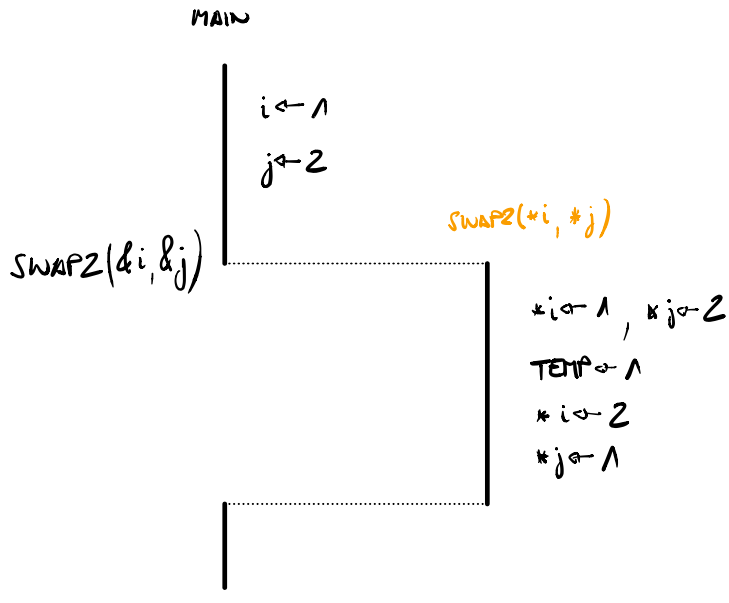 MAIN
i ← 1
j ← 2
SWAP2(*i, *j)
SWAP2(&i, &j)
*i ← 1, *j ← 2
TEMP ← 1
*i ← 2
*j ← 1